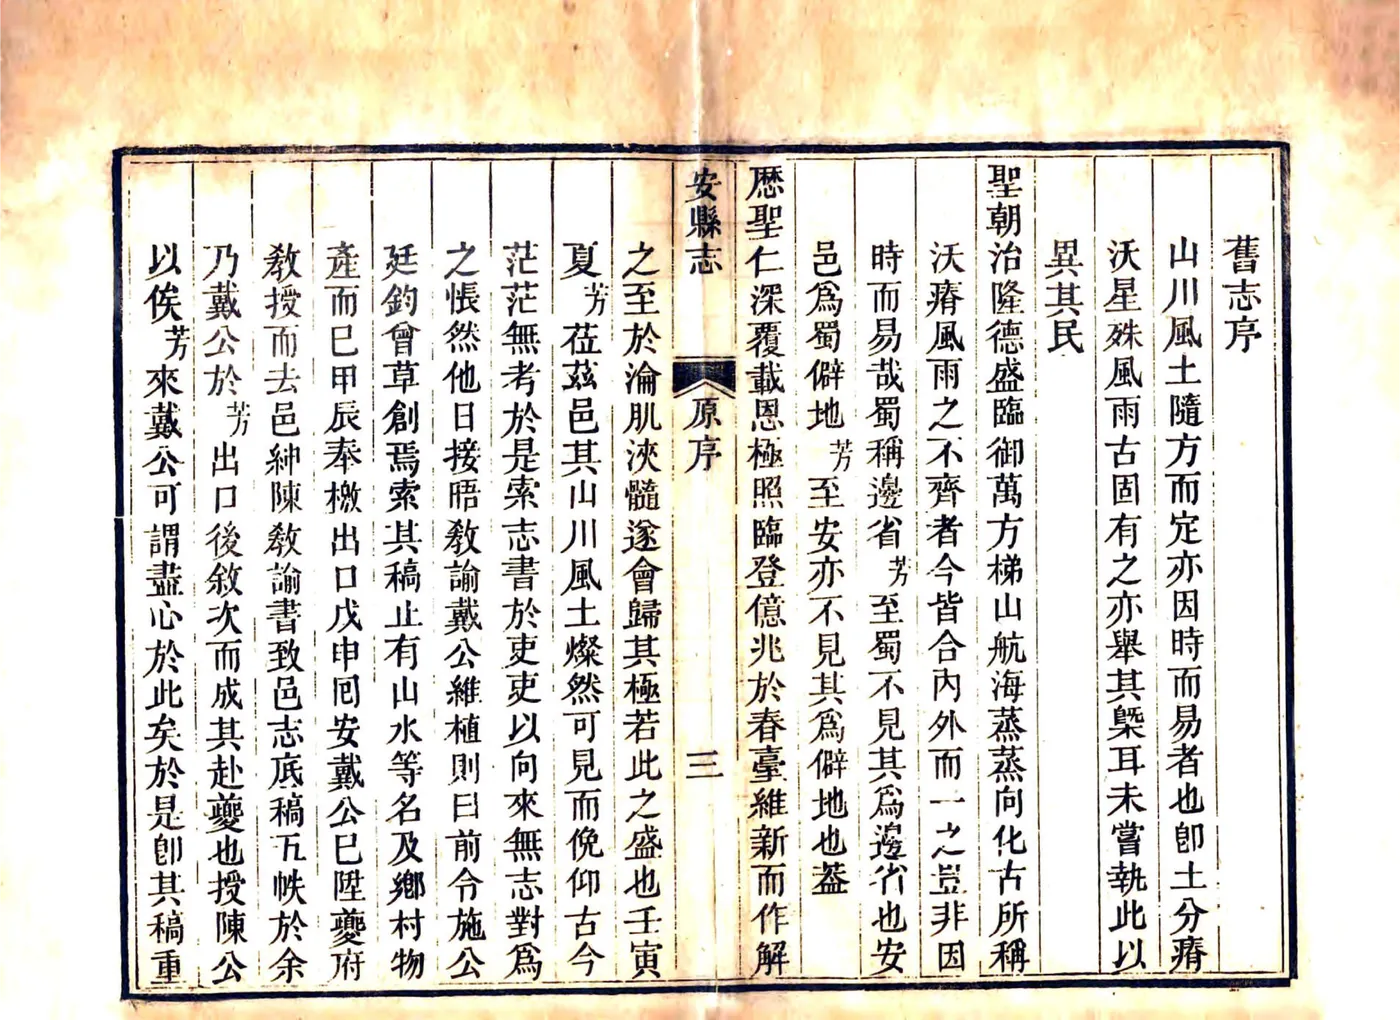 舊志序
山川風土隨方而定亦因時而易者也卽土分瘠
沃星殊風雨古固有之亦舉其槩耳未嘗執此以
異其民
聖朝治隆德盛臨御萬方梯山航海蒸蒸向化古所稱
沃瘠風雨之不齊者今皆合內外而一之豈非因
時而易哉蜀稱邊省芳至蜀不見其爲邊省也安
邑爲蜀僻地芳至安亦不見其爲僻地也葢
歷聖仁深覆載恩極照臨登億兆於春臺維新而作解
安縣志
原序
三
之至於淪肌浹髓遂會歸其極若此之盛也壬寅
夏芳莅茲邑其山川風土燦然可見而俛仰古今
茫茫無考於是索志書於吏吏以向來無志對爲
之悵然他日接晤敎諭戴公維植則曰前令施公
廷鈞曾草創焉索其稿止有山水等名及鄕村物
產而已甲辰奉檄出口戊申囘安戴公已陞夔府
敎授而去邑紳陳敎諭書致邑志底稿五帙於余
乃戴公於芳出口後敘次而成其赴夔也授陳公
以俟芳來戴公可謂盡心於此矣於是卽其稿重